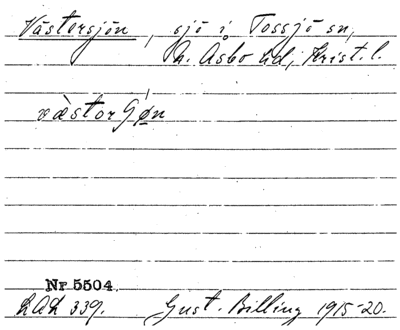 Västersjön, sjö i Tossjö sn,
N. Åsbo hd, Krist. l.
væ̀storGø̄́n
Nr 5504.
LAL 339. Gust. Billing 1915-20.